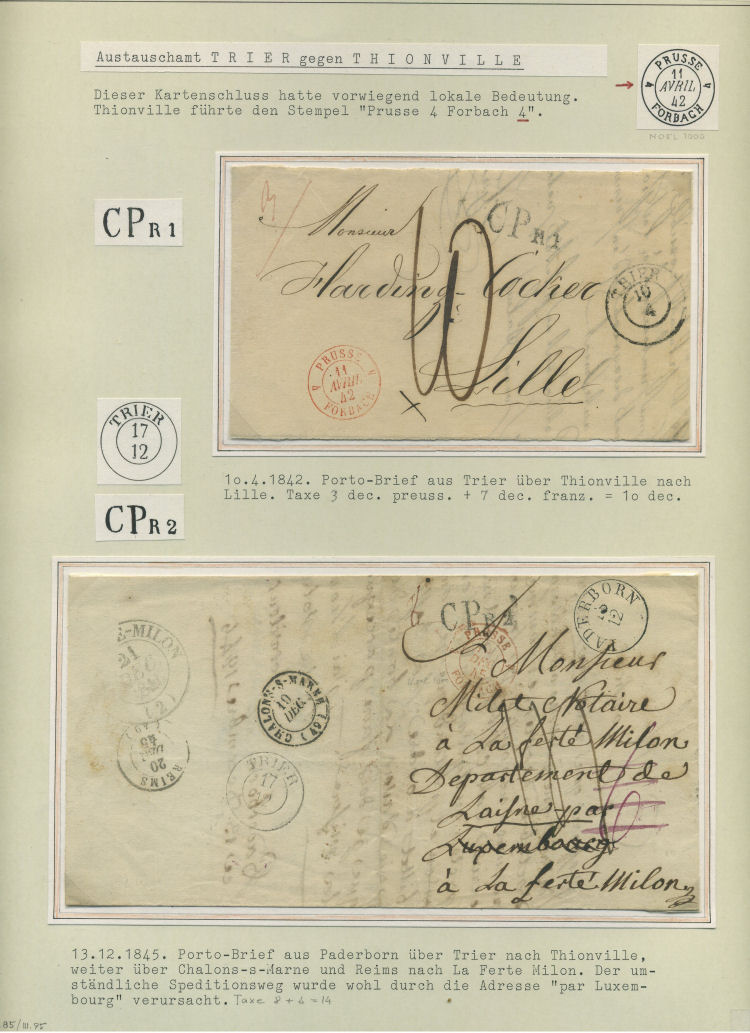 Austauschamt T R I E R gegen T H I O N V I L L E
PRUSSE
4 11 4
AVRIL
42
FORBACH
NOEL 1000
Dieser Kartenschluss hatte vorwiegend lokale Bedeutung.
Thionville führte den Stempel "Prusse 4 Forbach 4".
CPR1
CPR1
Monsieur
Harding-Cocker
Lille
10
TRIER
10
4
PRUSSE
4 11 4
AVRIL
42
FORBACH
TRIER
17
12
CPR2
1o.4.1842. Porto-Brief aus Trier über Thionville nach
Lille. Taxe 3 dec. preuss. + 7 dec. franz. = 1o dec.
E-MILON
21
(2)
REIMS
20
DEC
45
CHALONS-S-MARNE (49)
19
DEC
TRIER
17
12
CPR2
PRUSSE
PADERBORN
12
Monsieur
Milet Notaire
à La ferté Milon
Departement de
Laisne par
Luxembourg
à La ferté Milon
13.12.1845. Porto-Brief aus Paderborn über Trier nach Thionville,
weiter über Chalons-s-Marne und Reims nach La Ferte Milon. Der um-
ständliche Speditionsweg wurde wohl durch die Adresse "par Luxem-
bourg" verursacht. Taxe 8 + 6 = 14
85/III.95